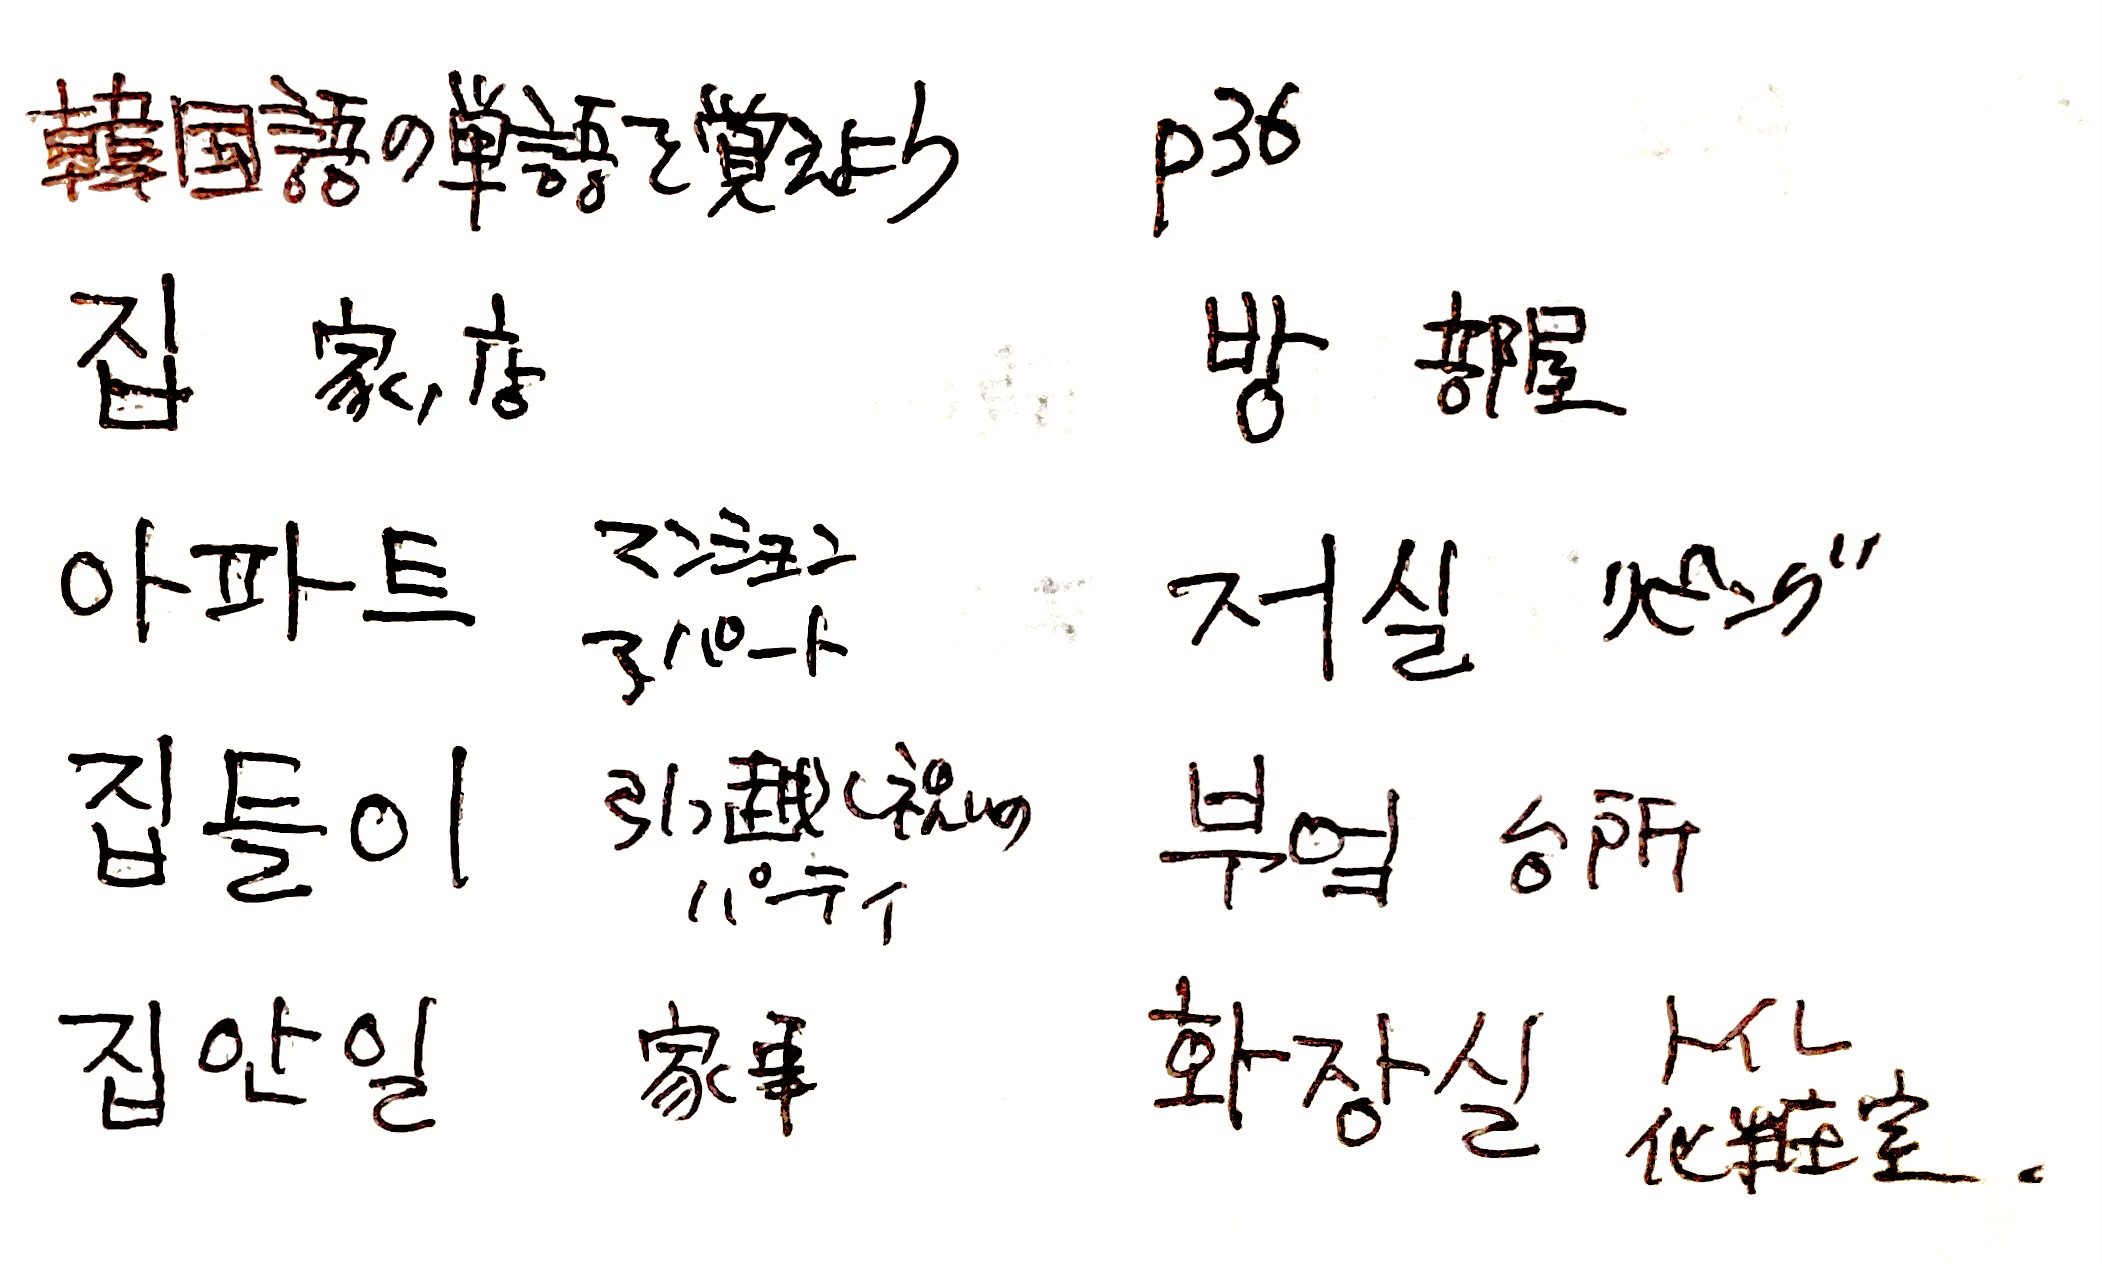 韓国語の単語を覚えよう p36
집 家,店
방 部屋
아파트 マンション
アパート
저실 リビング
집들이 引っ越し祝いの
パーティ
부엌 台所
집안일 家事
화장실 トイレ
化粧室.